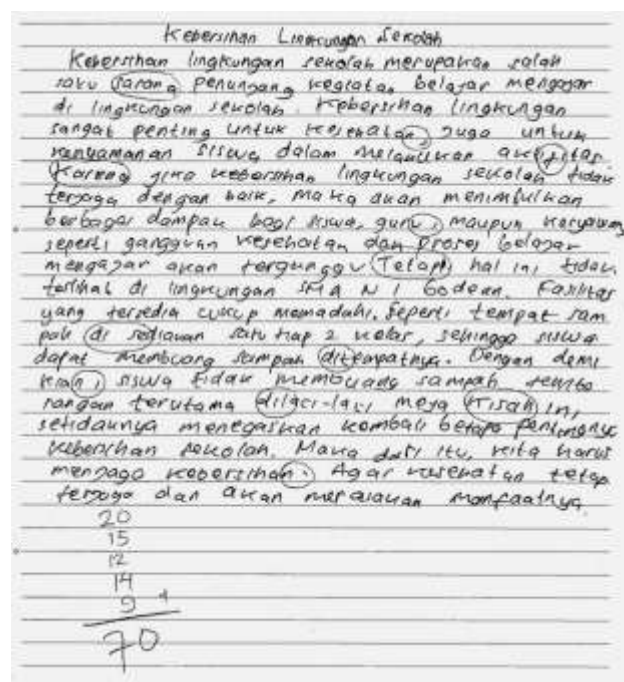 Kebersihan Lingkungan Sekolah
Kebersihan lingkungan sekolah merupakan salah
satu sarana penunjang kegiatan belajar mengajar
di lingkungan sekolah. Kebersihan lingkungan
sangat penting untuk kesehatan, juga untuk
kenyamanan siswa dalam melakukan aktifitas.
Karena jika kebersihan lingkungan sekolah tidak
terjaga dengan baik, maka akan menimbulkan
berbagai dampak bagi siswa, guru, maupun karyawan
seperti gangguan kesehatan dan proses belajar
mengajar akan terganggu. Tetapi hal ini tidak
terlihat di lingkungan SMA N 1 Godean. Fasilitas
yang tersedia cukup memadahi. Seperti tempat sam
pah di sediakan satu tiap 2 kelas, sehingga siswa
dapat membuang sampah ditempatnya. Dengan demi
kian, siswa tidak membuang sampah semba
rangan terutama dilaci-laci meja. Kisah ini,
setidaknya menegaskan kembali betapa pentingnya
kebersihan sekolah. Maka dari itu, kita harus
menjaga kebersihan. Agar kesehatan tetap
terjaga dan akan merasakan manfaatnya.
20
15
12
14
9 +
70